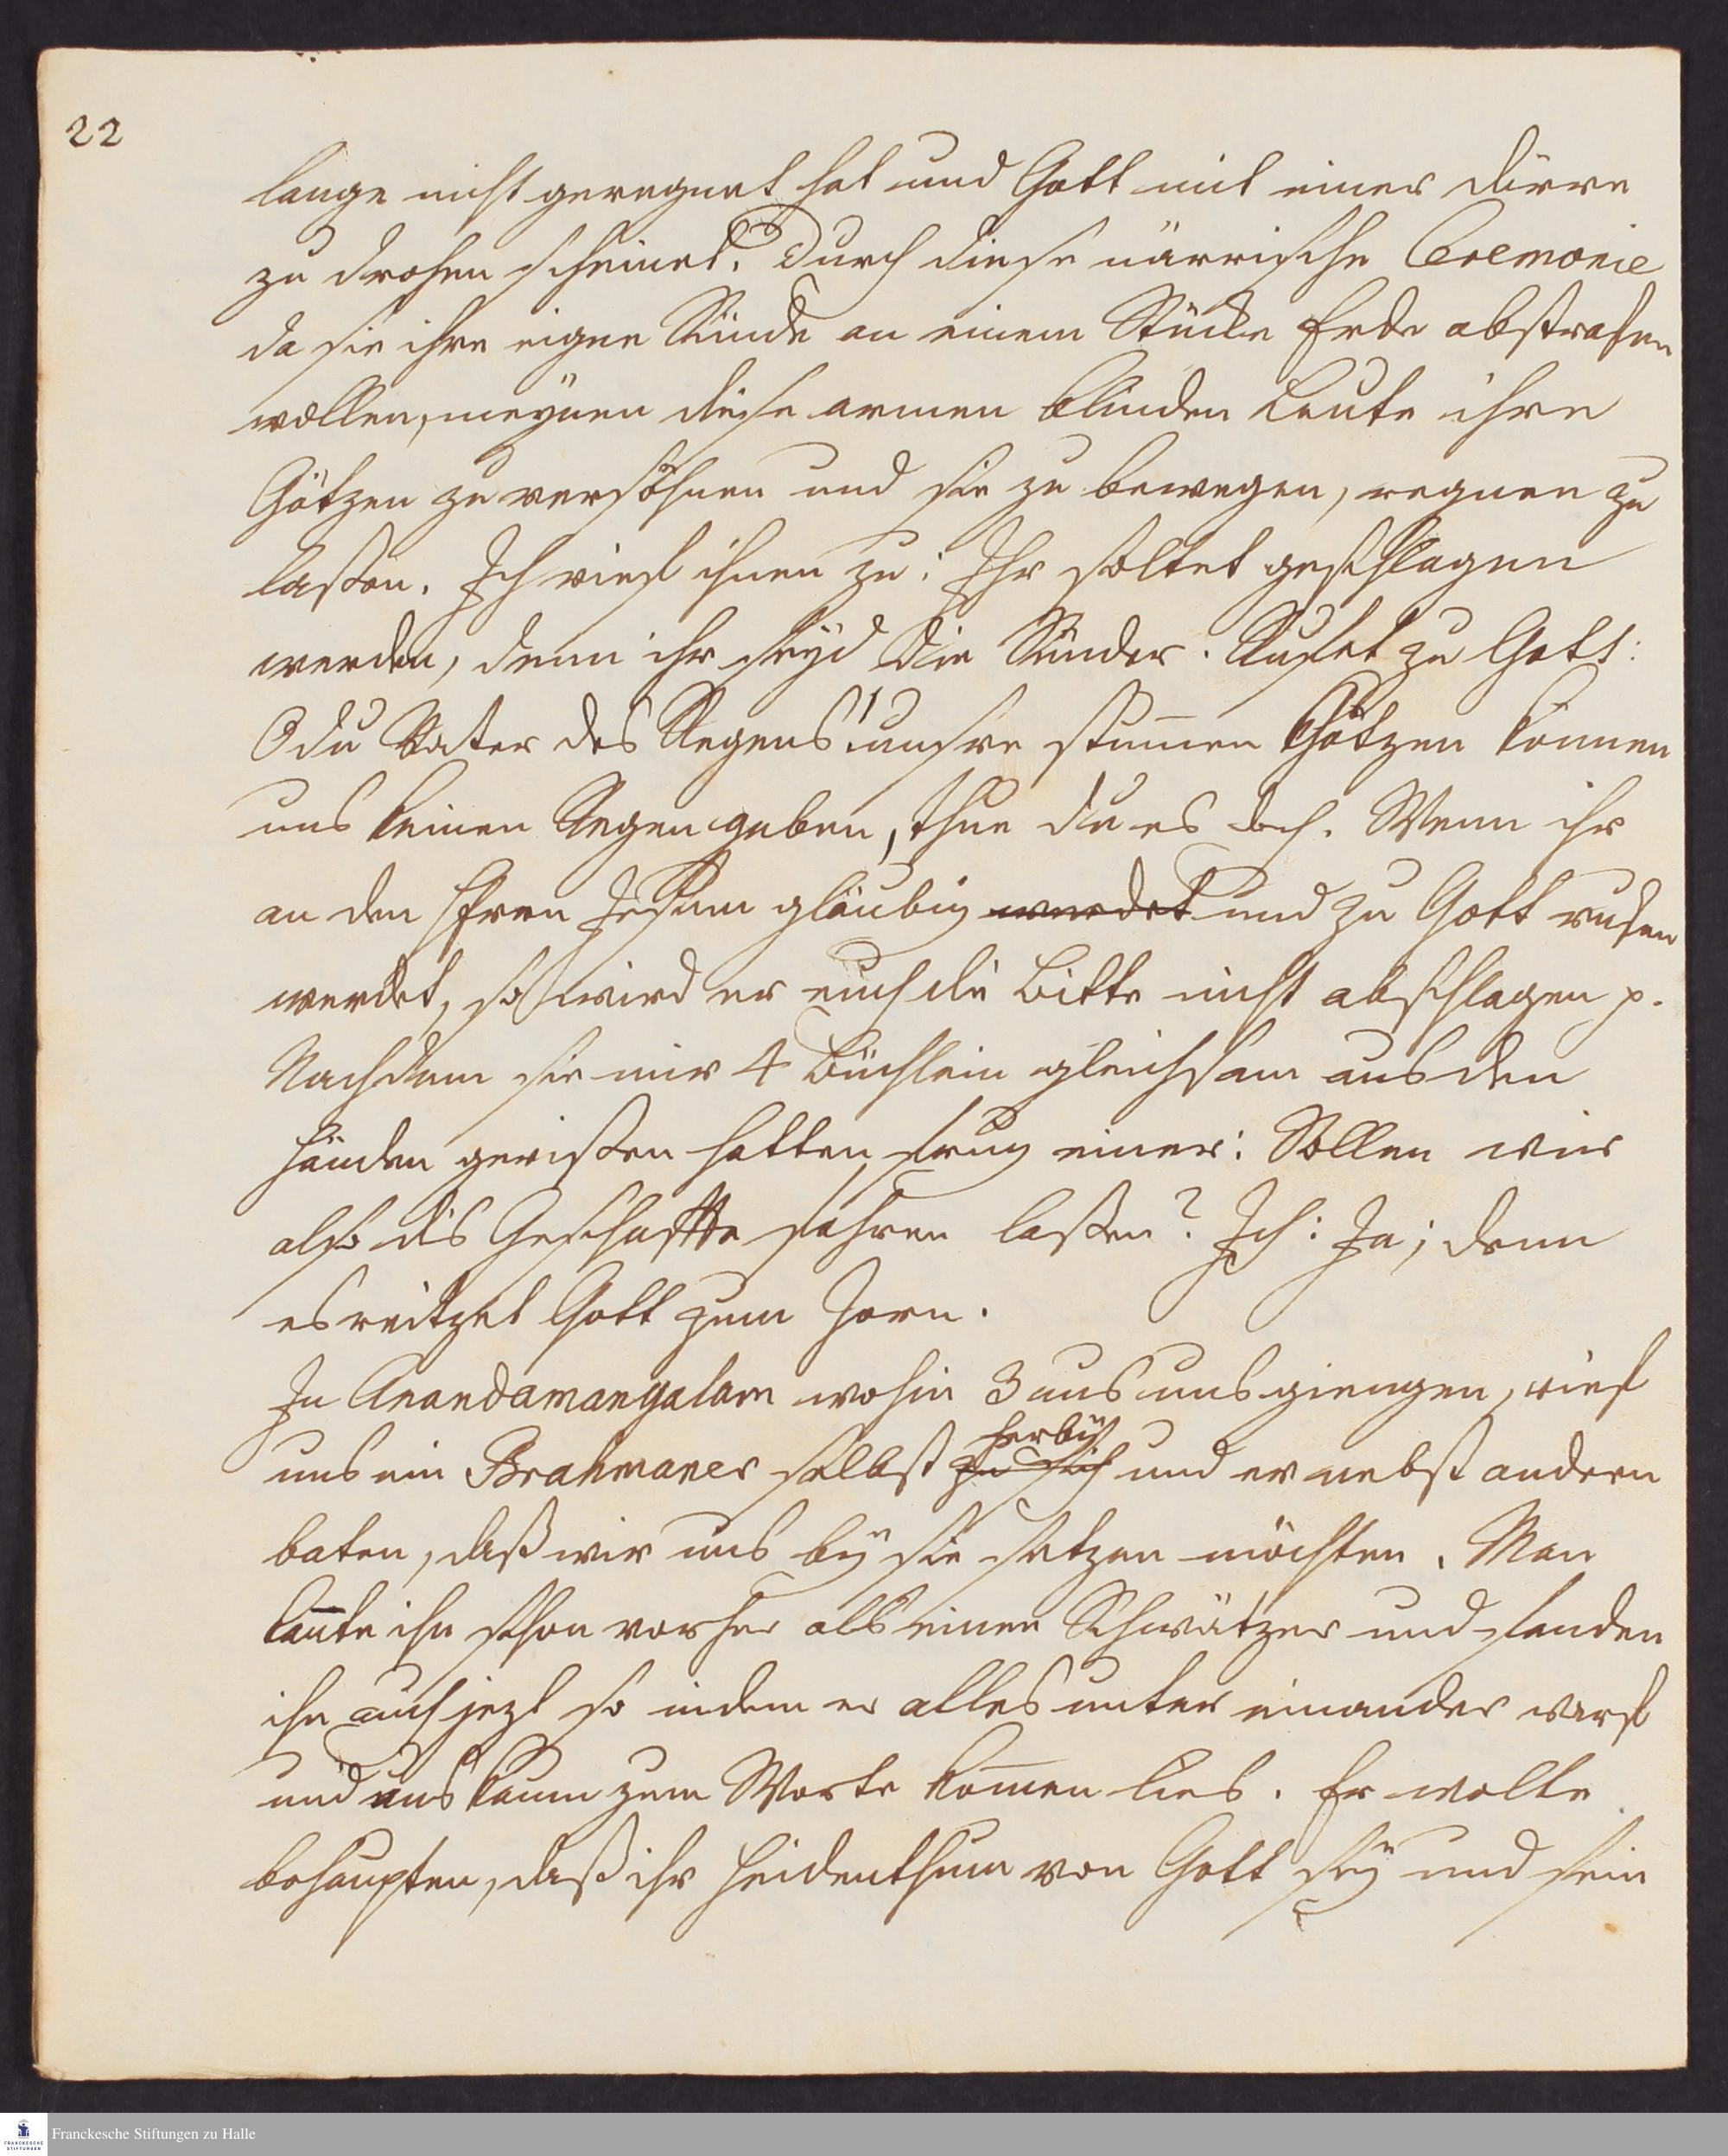 22
lange nicht geregnet hat und Gott mit einer Dürre
zu drohen scheinet. Durch diese närrische Ceremonie
da sie ihre eigne Sünde an einem Stücke Erde abstrafen
wollen, meÿnen diese armen blinden Leute ihre
Götzen zu versöhnen und sie zu bewegen, regnen zu
laßen. Ich rief ihnen zu: Ihr soltet geschlagen
werden, denn ihr seÿd die Sünder. Rufet zu Gott:
O du Vater des Regens! unsre stum̄en Götzen können
uns keinen Regen geben, thue du es doch. Wenn ihr
an den Herrn Jesum gläubig werdet und zu Gott rufen
werdet, so wird er euch die Bitte nicht abschlagen p.
Nachdem sie mir 4 Büchlein gleichsam aus den
Händen gerißen hatten, frug einer: Sollen wir
also dis Geschaffte fahren laßen? Ich: Ja; denn
es reitzet Gott zum Zorn.
In Anandamangalam wohin 3 aus uns giengen, rief
herbeÿ
uns ein Brahmaner selbst zu sich und er nebst andern
baten, daß wir uns beÿ sie setzen möchten. Man
kan̄te ihn schon vorher als einen Schwätzer und fanden
ihn auch jezt so indem er alles unter einander warf
und uns kaum zum Worte kom̄en lies. Er wolte
behaupten, daß ihr Heidenthum von Gott seÿ und sein
Franckesche Stiftungen zu Halle
FRANCKESCHE
STIFTUNGEN